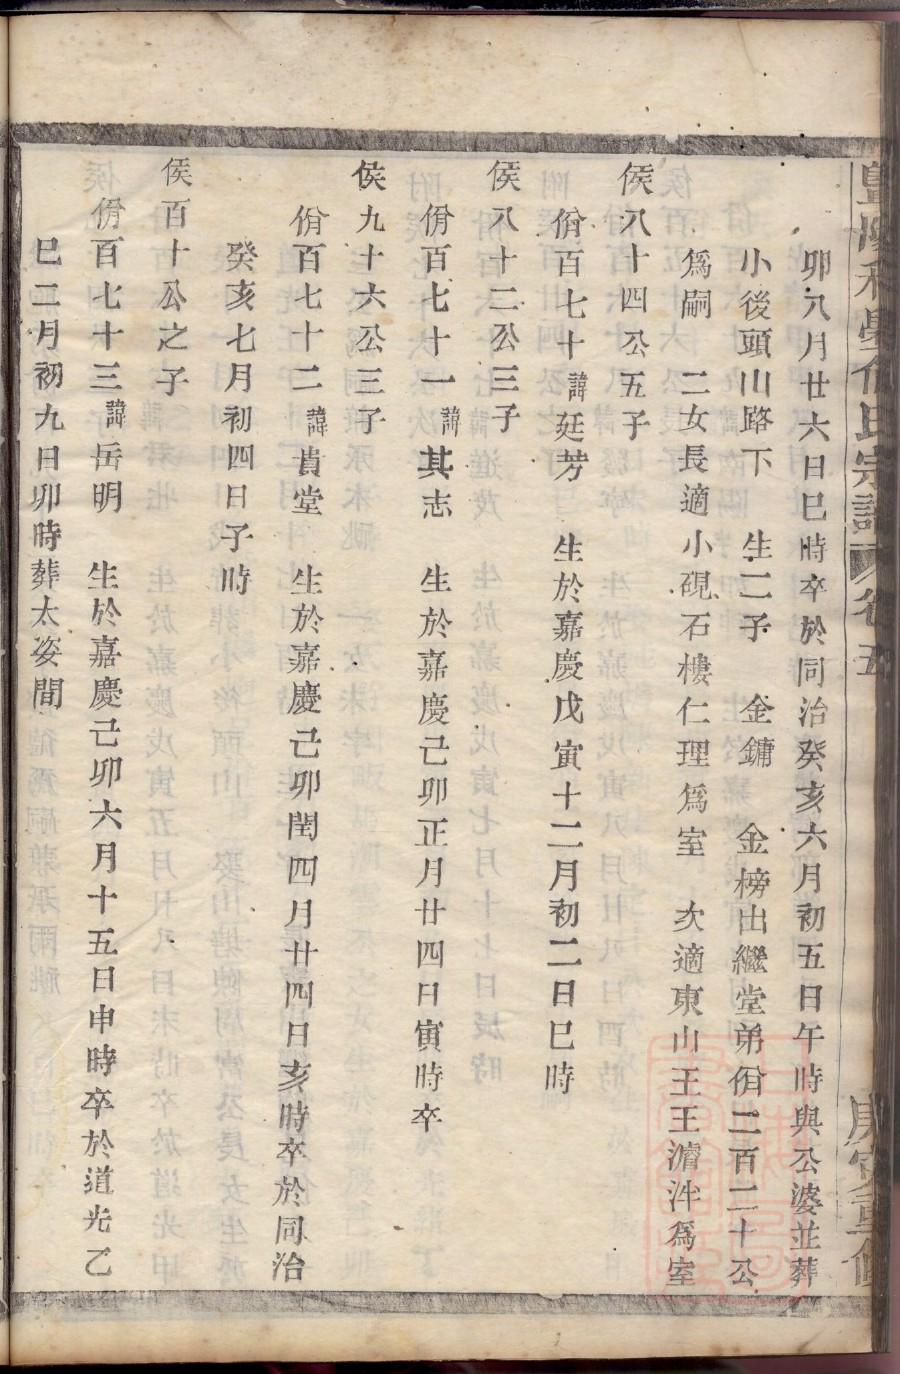 卯八月廿六日巳時卒於同治癸亥六月初五日午時與公婆並葬
小後頭山路下 生二子 金鏞 金榜出繼堂弟佾二百二十公
爲嗣 二女長適小硯石樓仁理爲室 次適東山王王澹泮爲室
侯八十四公五子
佾百七十諱廷芳 生於嘉慶戊寅十二月初二日巳時
侯八十二公三子
佾百七十一諱其志 生於嘉慶己卯正月廿四日寅時卒
侯九十六公三子
佾百七十二諱貴堂 生於嘉慶己卯閏四月廿四日亥時卒於同治
癸亥七月初四日子時
侯百十公之子
佾百七十三諱岳明 生於嘉慶己卯六月十五日申時卒於道光乙
巳二月初九日卯時葬太婆間
氏宗譜 卷五